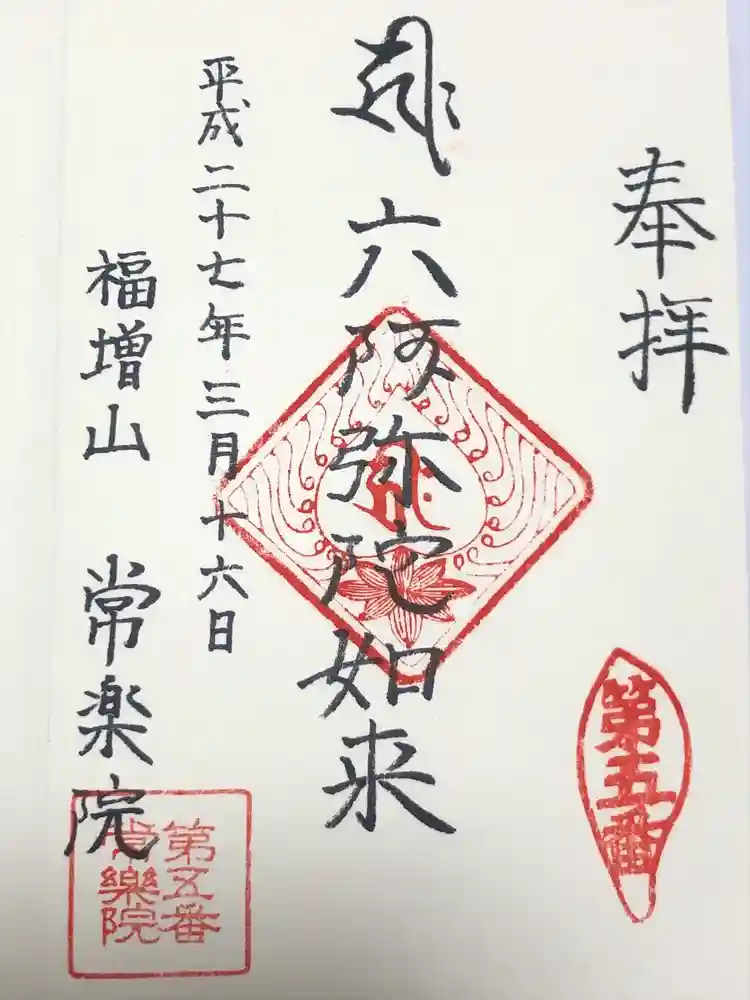 奉拝
六阿弥陀如来
平成二十七年三月十六日
福増山 常楽院
第五番
第五番
常樂院